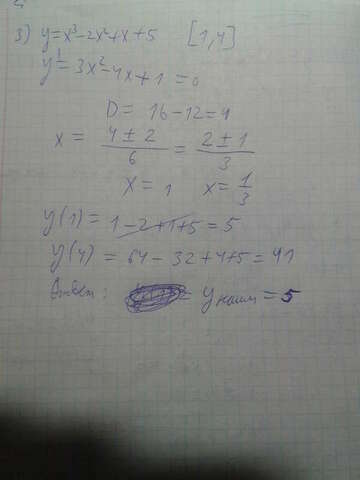 3) y=x³-2x²+x+5 [1,4]
y¹=3x²-4x+1=0
D= 16-12=4
x= 4±2/6 = 2±1/3
x=1 x=1/3
y(1)=1-2+1+5=5
y(4)=64-32+4+5=41
Ответ: = yнаим=5